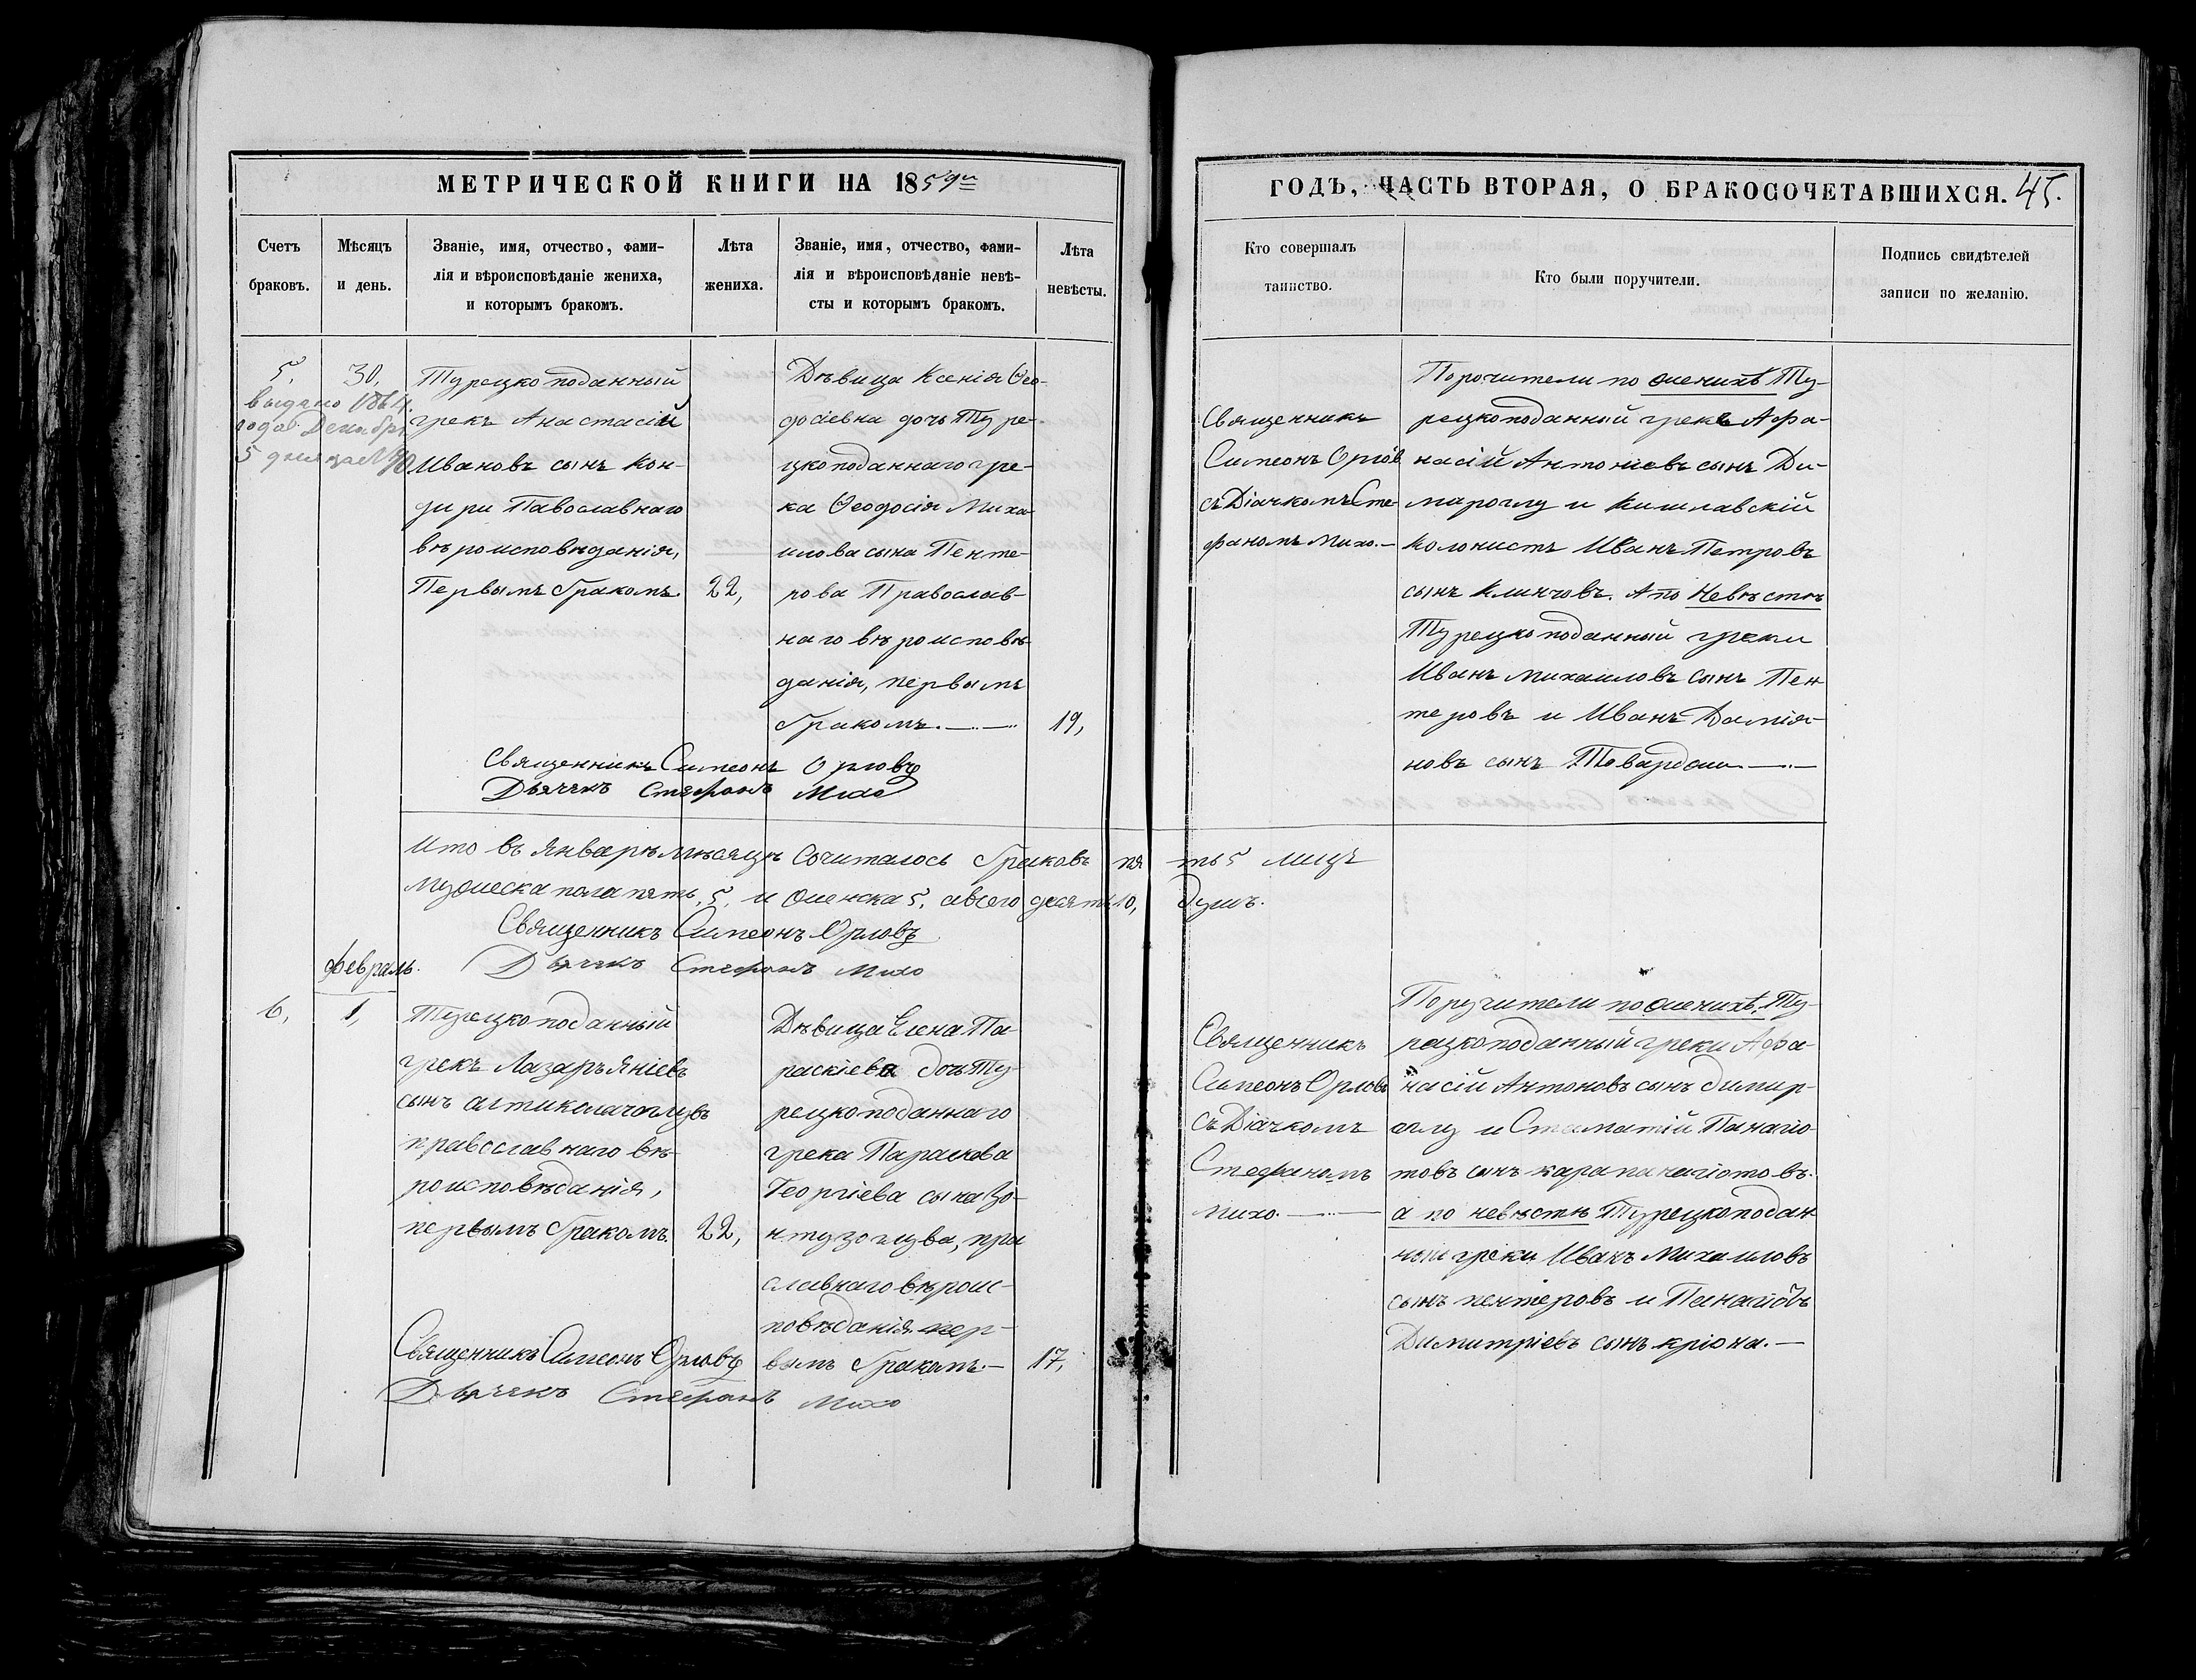 МЕТРИЧЕСКОЙ КНИГИ НА 1859й
ГОДЪ, ЧАСТЬ ВТОРАЯ, О БРАКОСОЧЕТАВШИХСЯ. 45.
Счетъ
браковъ.
Мѣсяцъ
и день.
Званіе, имя, отчество, фами-
лія и вѣроисповѣданіе жениха,
и которымъ бракомъ.
Лѣта
жениха.
Званіе, имя, отчество, фами-
лія и вѣроисповѣданіе невѣ-
сты и которымъ бракомъ.
Лѣта
невѣсты.
Кто совершалъ
таинство.
Кто были поручители.
Подпись свидѣтелей
записи по желанію.
5,
30,
выдано 1864
года Декабря
5 дня за №
Турецко поданный
грекъ Анастасій
Ивановъ сынъ Кон-
дири Павославнаго
вѣроисповѣданія,
Первымъ бракомъ.
22,
Дѣвица Ксенія Ѳео-
досіевна дочь Туре-
цкоподаннаго гре-
ка Ѳеодосія Миха-
илова сына Пенте-
рова Православ-
наго вѣроисповѣ-
данія, первымъ
бракомъ.
19,
Священникъ Симеонъ Орловъ
Дьячекъ Стефанъ Михо
Священникъ
Симеонъ Орловъ
съ Діачкомъ Сте-
фаномъ Михо.—
Порочители по женихѣ Ту-
рецкоподанный грекъ Афа-
насій Антоніевъ сынъ Ди-
мироглу и Кишлавскій
колонистъ Иванъ Петровъ
сынъ Клинчовъ. А по Невѣстѣ
Турецкоподанный греки
Иванъ Михаиловъ сынъ Пен
теровъ и Иванъ Дамія-
новъ сынъ
Ито въ Январѣ мѣсяцѣ сочиталось браковъ пя ть 5 лицъ
Мужеска пола пять, 5, и женска 5, а всего десять 10, душъ.
Священникъ Симеонъ Орловъ
Дьячекъ Стефанъ Михо
Февраль.
6,
1,
Турецкоподанный
грекъ Лазарь Яніевъ
сынъ
православнаго вѣ-
роисповѣданія,
первымъ бракомъ.
22,
Дѣвица Елена Па-
раскіева дочь Ту-
рецкоподаннаго
грека Параскева
Георгіева сына Зо-
нтузоглува, пра
славнаго вѣроис-
повѣданія пер-
вымъ бракомъ.—
17,
Священникъ Симеонъ Орловъ
Дьячекъ Стефанъ Михо
Священникъ
Симеонъ Орловъ
съ Діачкомъ
Стефаномъ
михо.
Поручители по женихѣ, Ту-
рецкоподанный греки Афа-
насій Антоновъ сынъ димир-
оглу и Стаматій Панагіо-
товъ сынъ карапанагіотовъ.
а по невѣстѣ Турецкоподан
ныи греки Иванъ Михаиловъ
сынъ пентеровъ и Панаіовъ
Димитріевъ сынъ кріона.—